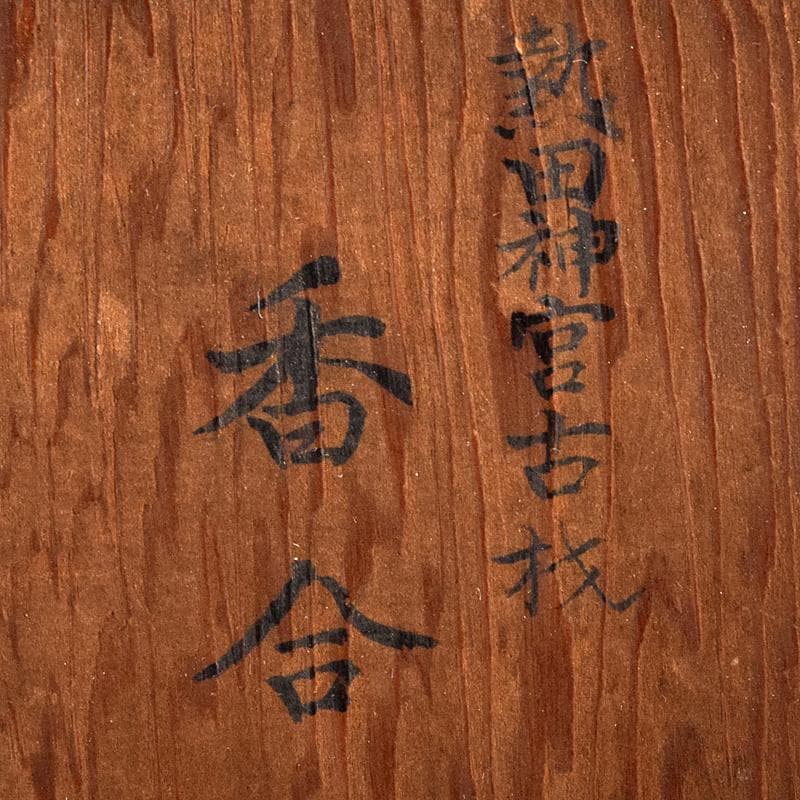 熱田神宮古材
香合